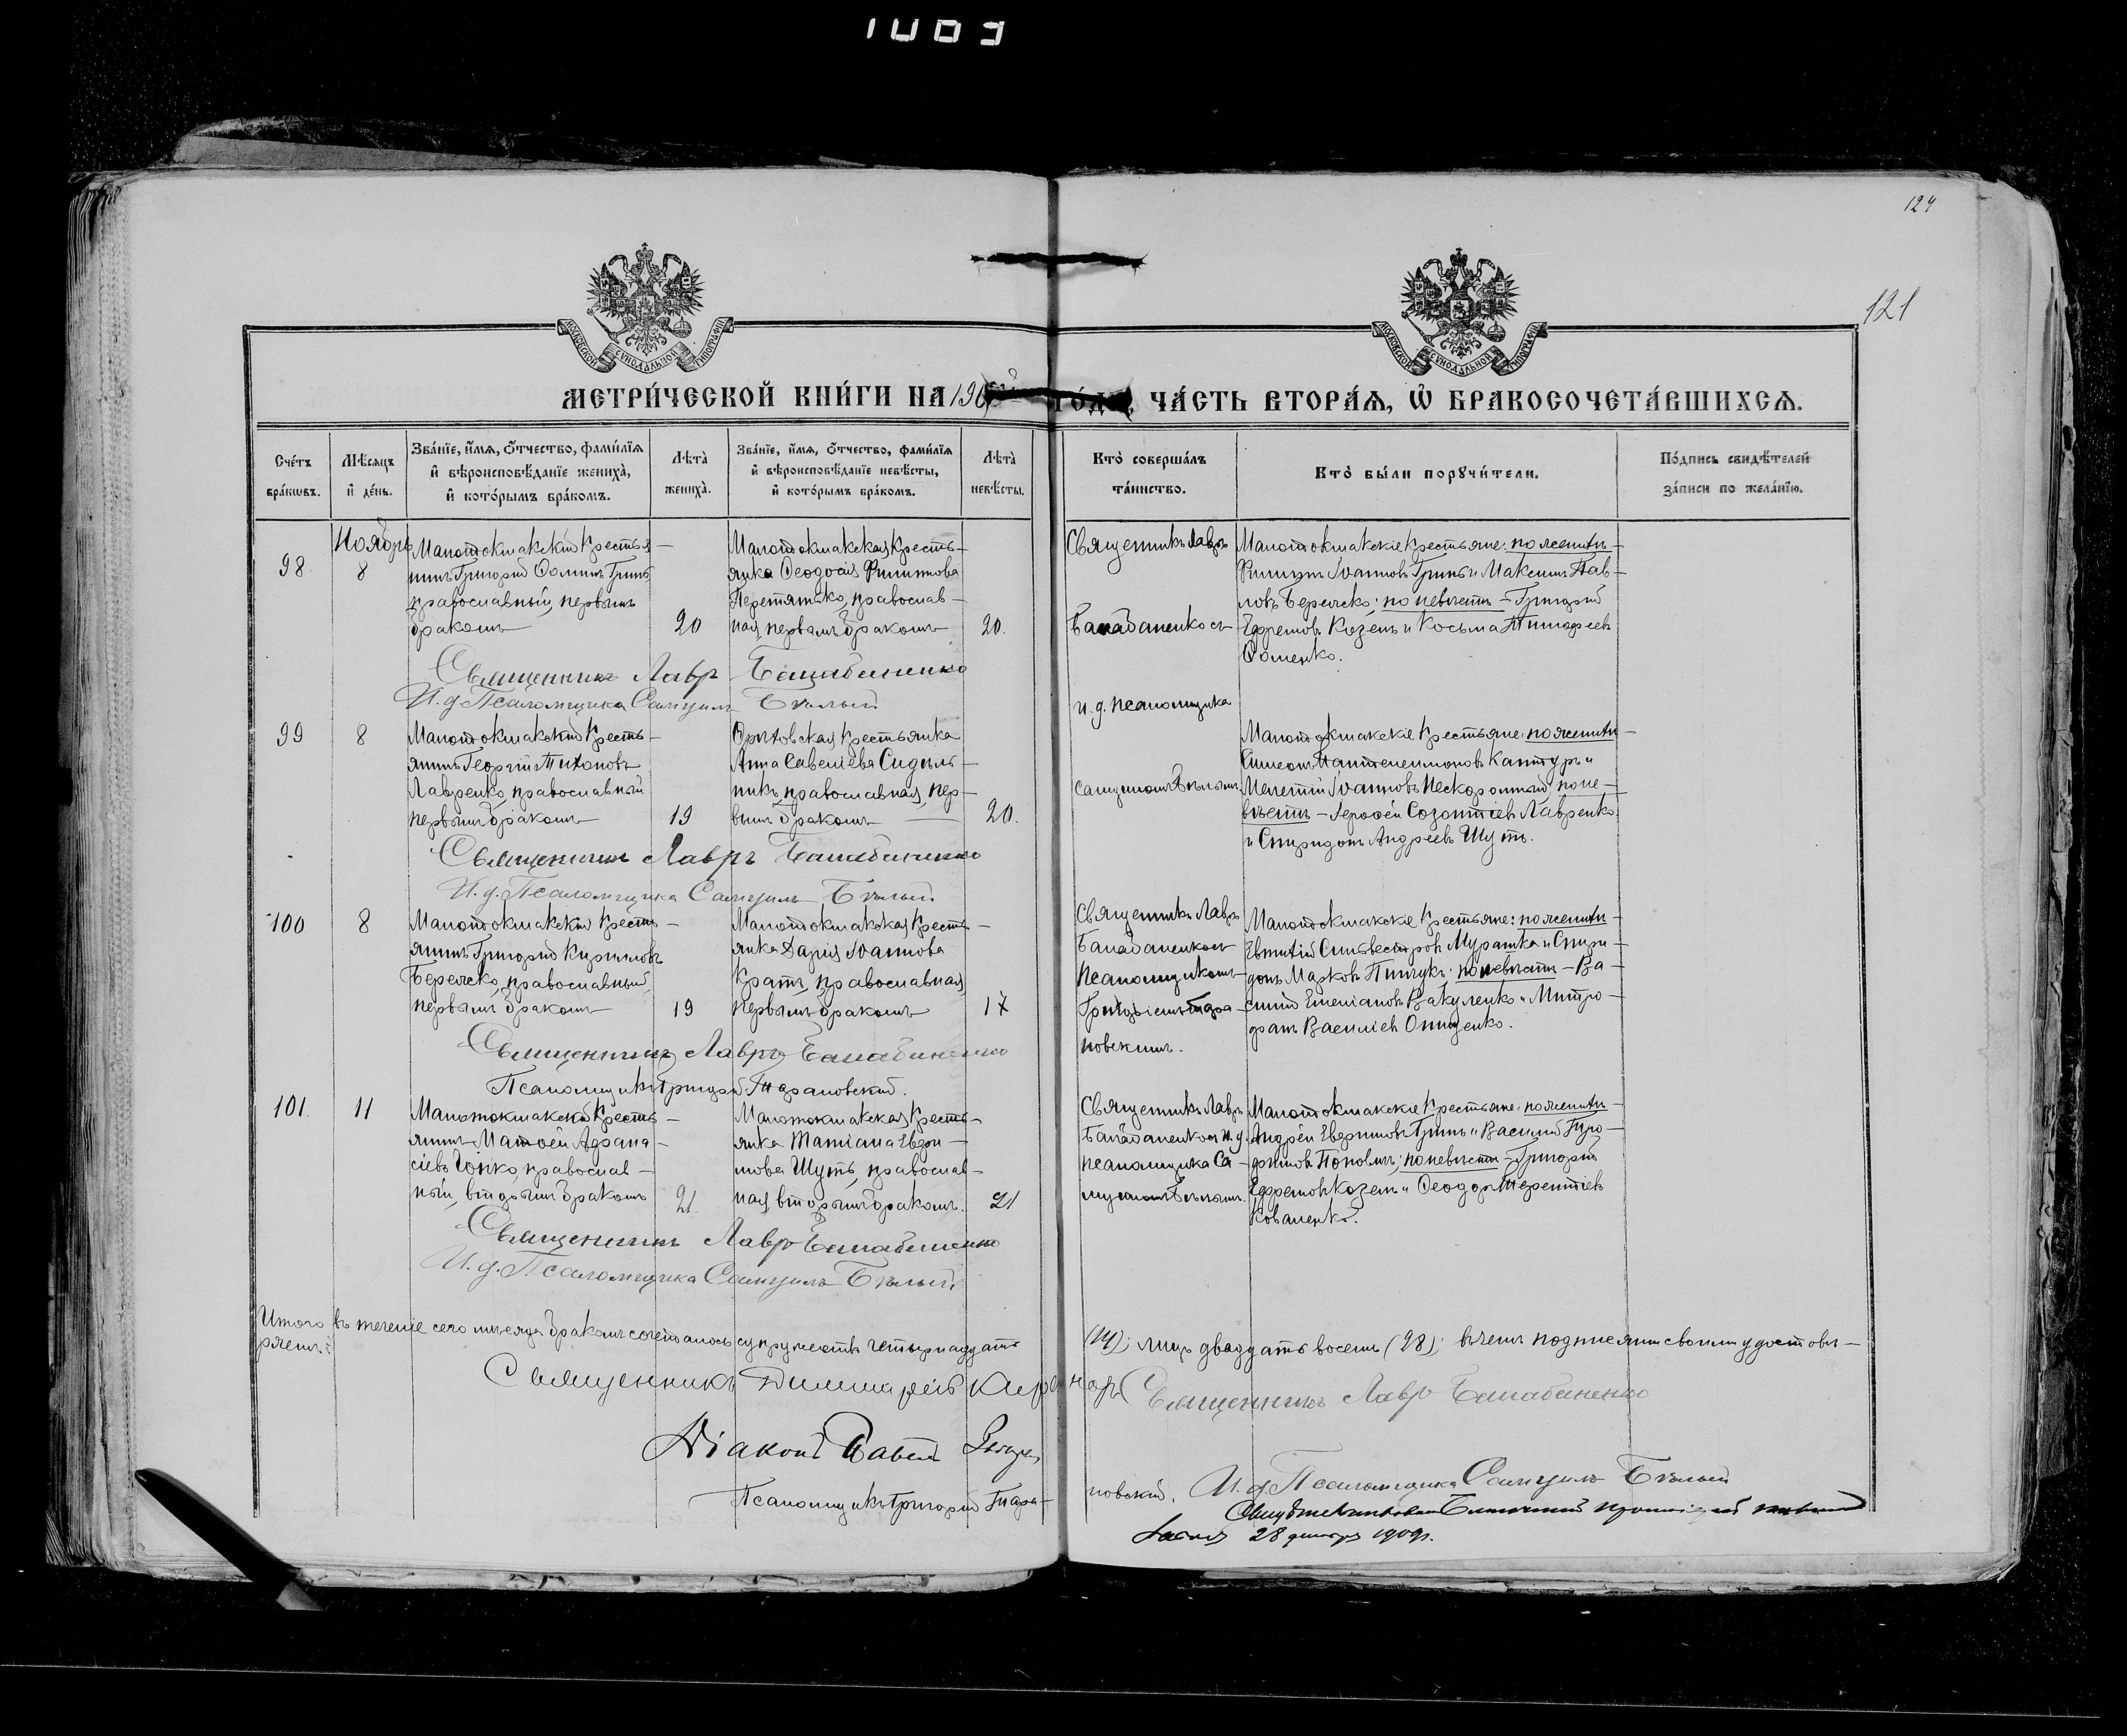 1003
124
121
МОСКОВСКОЙ СѴНОДАЛЬНОЙ ТИПОГРАФІИ
МОСКОВСКОЙ СѴНОДАЛЬНОЙ ТИПОГРАФІИ
МЕТРИ́ЧЕСКОЙ КНИ́ГИ НА 190 ГО́ДЪ, ЧА́СТЬ ВТОРА́Я, Ѡ БРАКОСОЧЕТА́ВШИХСЯ.
Сче́тъ бра́кѡвъ.
Мѣ́сяцъ и де́нь.
Зва́нїе, и́мя, о́тчество, фами́лїя и вѣроисповѣ́данїе жениха̀, и кото́рымъ бра́комъ.
Лѣта̀ жениха̀.
Зва́нїе, и́мя, о́тчество, фами́лїя и вѣроисповѣ́данїе невѣ́сты, и кото́рымъ бра́комъ.
Лѣта̀ невѣ́сты.
Кто̀ соверша́лъ та́инство.
Кто̀ бы́ли порꙋчи́тели.
По́дпись свидѣ́телей за́писи по жела́нїю.
Ноябрь
98
8
Малотокмакскій крестья-
нинъ Григорій Ѳоминъ Гринь
православный, первымъ
бракомъ
20
Малотокмакская кресть-
янка Ѳеодосія Филиппова
Перетятько, православ-
ная, первымъ бракомъ
20.
Священникъ Лавръ
Балабаненко съ
и. д. псаломщика
Самуиломъ Бѣлымъ
Малотокмакскіе крестьяне: по женихѣ-
Филиппъ Іоанновъ Гринь и Максимъ Пав-
ловъ Бережко; по невѣстѣ - Григорій
Ефремовъ Козелъ и Косьма Тимофеевъ
Фоменко.
Священникъ Лавръ Балабаненко
И. д. Псаломщика Самуилъ Бѣлый
99
8
Малотокмакскій кресть-
янинъ Георгій Тихоновъ
Лавренко, православный
первымъ бракомъ
19
Орѣховская крестьянка
Анна Савеліева Сидѣль-
никъ, православная, пер-
вымъ бракомъ
20.
Малотокмакскіе крестьяне: по женихѣ-
Симеонъ Пантелеимоновъ Кантуръ и
Мелетій Іоанновъ Нескоромный, по не-
вѣстѣ - Іерофей Созонтіевъ Лавренко
и Спиридонъ Андреевъ Шуть.
Священникъ Лавръ Балабаненко
И. д. Псаломщика Самуилъ Бѣлый
100
8
Малотокмакскій кресть-
янинъ Григорій Кирилловъ
Бережко, православный,
первымъ бракомъ
19
Малотокмакская кресть-
янка Дарія Іоаннова
Кратъ, православная,
первымъ бракомъ
17
Священникъ Лавръ
Балабаненко съ
псаломщикомъ
Григоріемъ Тара-
новскимъ.
Малотокмакскіе крестьяне: по женихѣ-
Евтихій Сильвестровъ Мурашка и Спири-
донъ Марковъ Пинчукъ; по невѣстѣ - Ва-
силій Емеліановъ Вакуленко и Митро-
фанъ Василіевъ Онищенко.
Священникъ Лавръ Балабаненко
Псаломщикъ Григорій Тарановскій.
101.
11
Малотокмакскій кресть-
янинъ Матѳей Аѳана-
сіевъ Гойко, православ-
ный, вторымъ бракомъ
21
Малотокмакская кресть-
янка Татіана Ефи-
мова Шуть, православ-
ная, вторымъ бракомъ.
21
Священникъ Лавръ
Балабаненко съ и. д.
псаломщика Са-
муиломъ Бѣлымъ.
Малотокмакскіе крестьяне: по женихѣ-
Андрей Евфимовъ Гринь и Василій Тро-
фимовъ Поповичъ; по невѣстѣ - Григорій
Ефремовъ Козелъ и Ѳеодоръ Терентіевъ
Коваленко.
Священникъ Лавръ Балабаненко
И. д. Псаломщика Самуилъ Бѣлый
Итого въ теченіе сего мѣсяца бракомъ сочеталось супружествъ четырнадцать (14); лицъ двадцать восемь (28); въ чемъ подписями своими удостовѣ-
ряемъ:
Священникъ
Священникъ Лавръ Балабаненко
Діаконъ Павелъ
Псаломщикъ Григорій Тара-
новскій.
И. д. Псаломщика Самуилъ Бѣлый
Свидѣтельствовалъ Благочинный
28 1909 г.